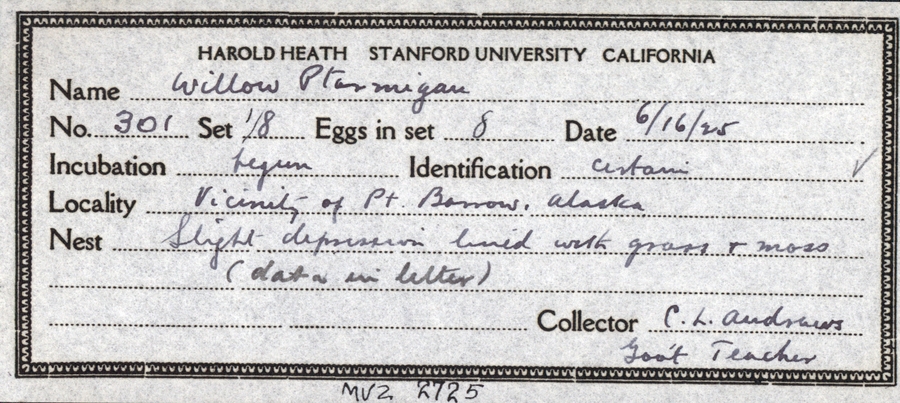 HAROLD HEATH STANFORD UNIVERSITY CALIFORNIA
Name Willow Ptarmigan
No. 301 Set 1/8 Eggs in set 8 Date 6/16/25
Incubation begun Identification certain ✓
Locality Vicinity of Pt. Barrow, Alaska
Nest Slight depression lined with grass & moss
(data in letter)
Collector C. L. Andrews
Gov't Teacher
MVZ 2725